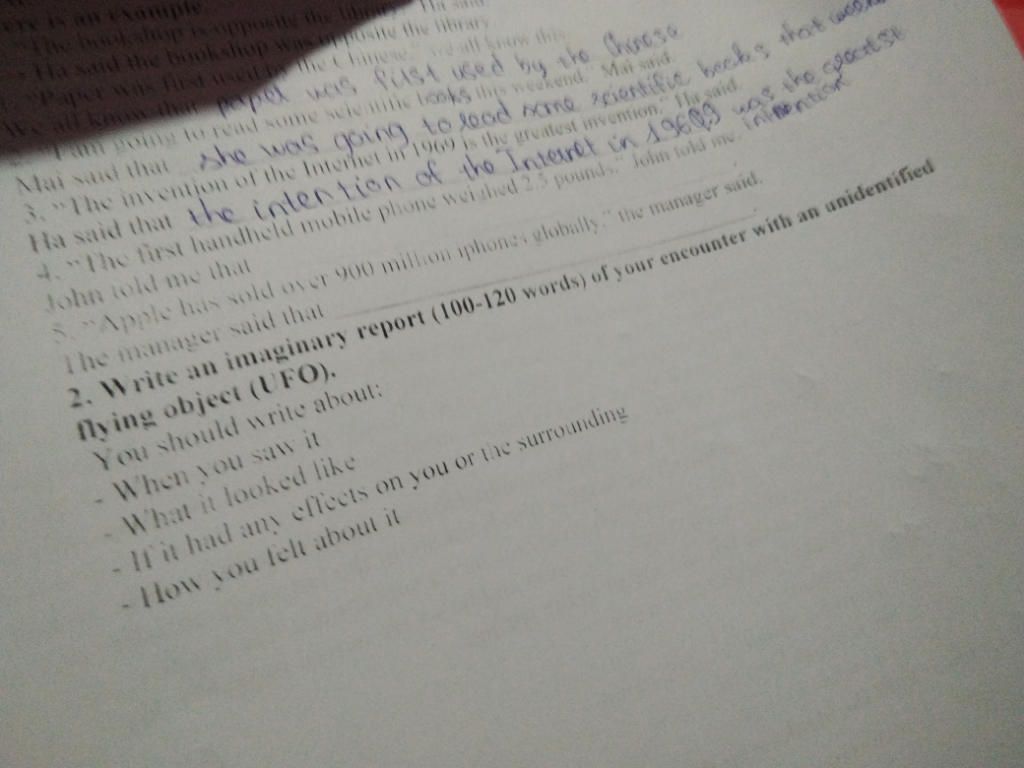 ere is an example
"The bookshop is opposite the library." Ha said
Ha said the bookshop was opposite the library
"Paper was first used by the Chinese," we all know this.
We all know that paper was first used by the Chinese
"I am going to read some scientific books this weekend." Mai said.
Mai said that she was going to read some scientific books that
3. "The invention of the Internet in 1969 is the greatest invention." Ha said.
Ha said that the intention of the Internet in 1969 was the greatest intention
4. "The first handheld mobile phone weighed 2.5 pounds." John told me.
John told me that
5. "Apple has sold over 900 million iphones globally." the manager said.
The manager said that
2. Write an imaginary report (100-120 words) of your encounter with an unidentified
flying object (UFO).
You should write about:
- When you saw it
- What it looked like
- If it had any effects on you or the surrounding
- How you felt about it